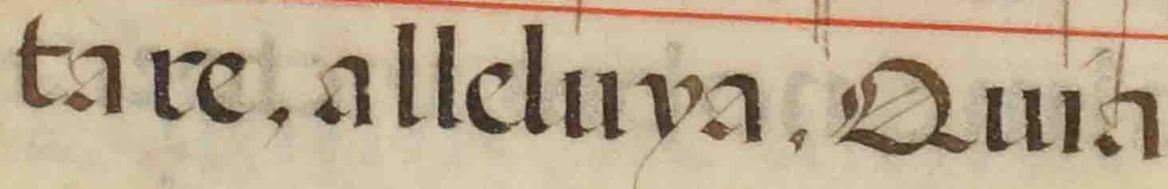 tare, alleluya, Quia